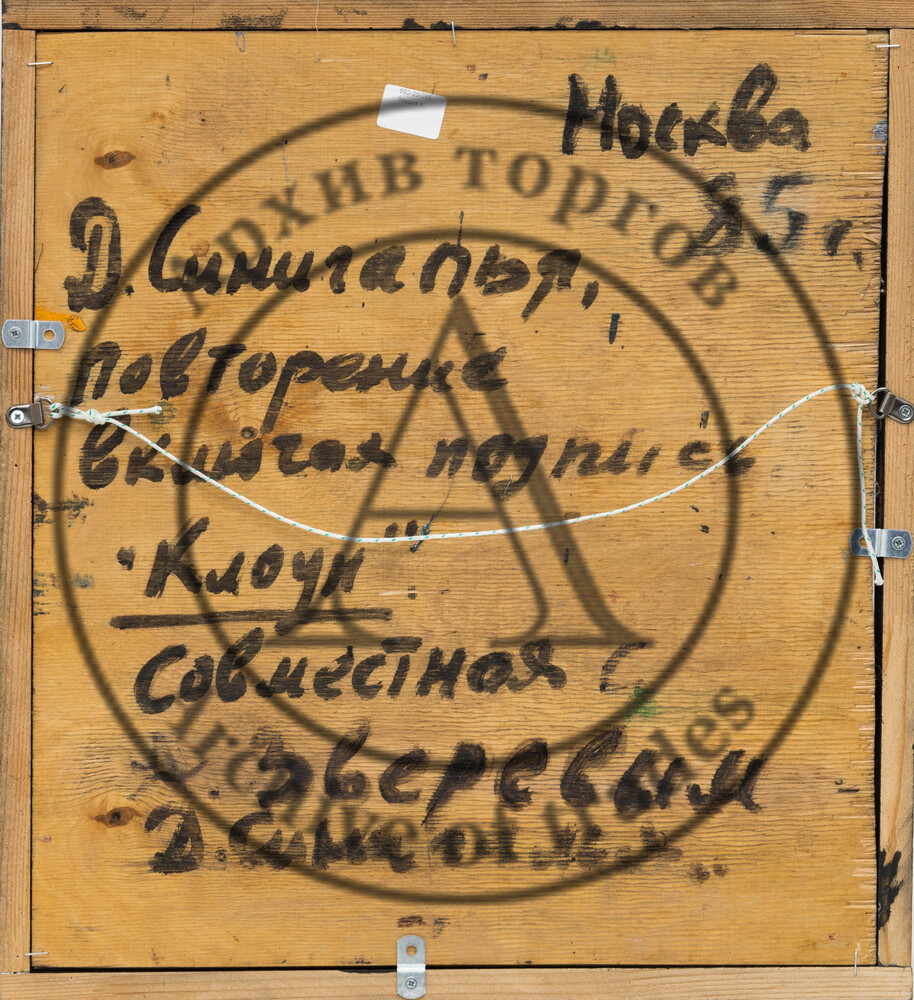 Москва
85 г.
Д. Синигапья,
повторение
включая подпись
"Клоун"
Совместная с
Зверевым
Д. Сини
АРХИВ ТОРГОВ
Archive of trades